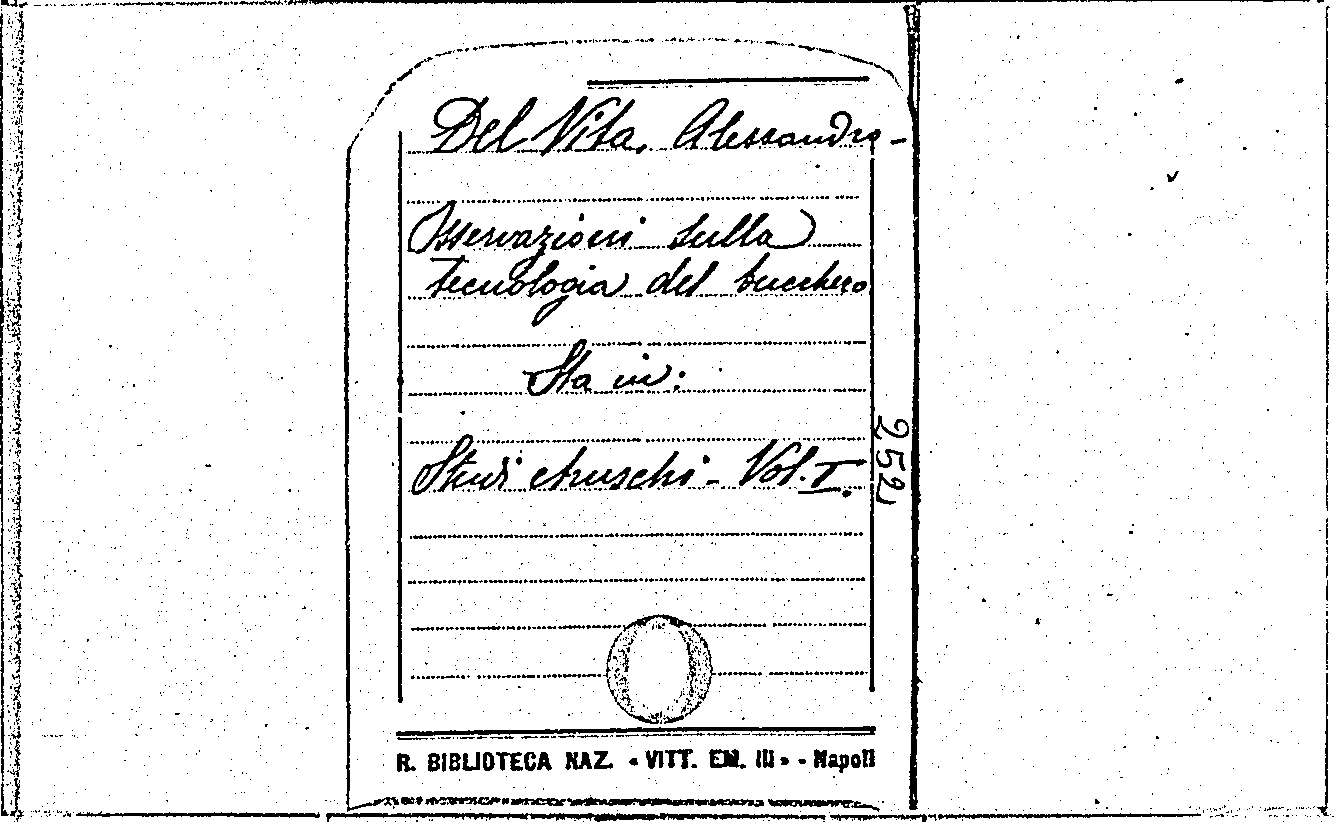 Del Vita, Alessandro-
Osservazioni sulla
tecnologia del bucchero
Sta in:
Studi etruschi - Vol. I.
252
R. BIBLIOTECA NAZ. « VITT. EM. III » - Napoli